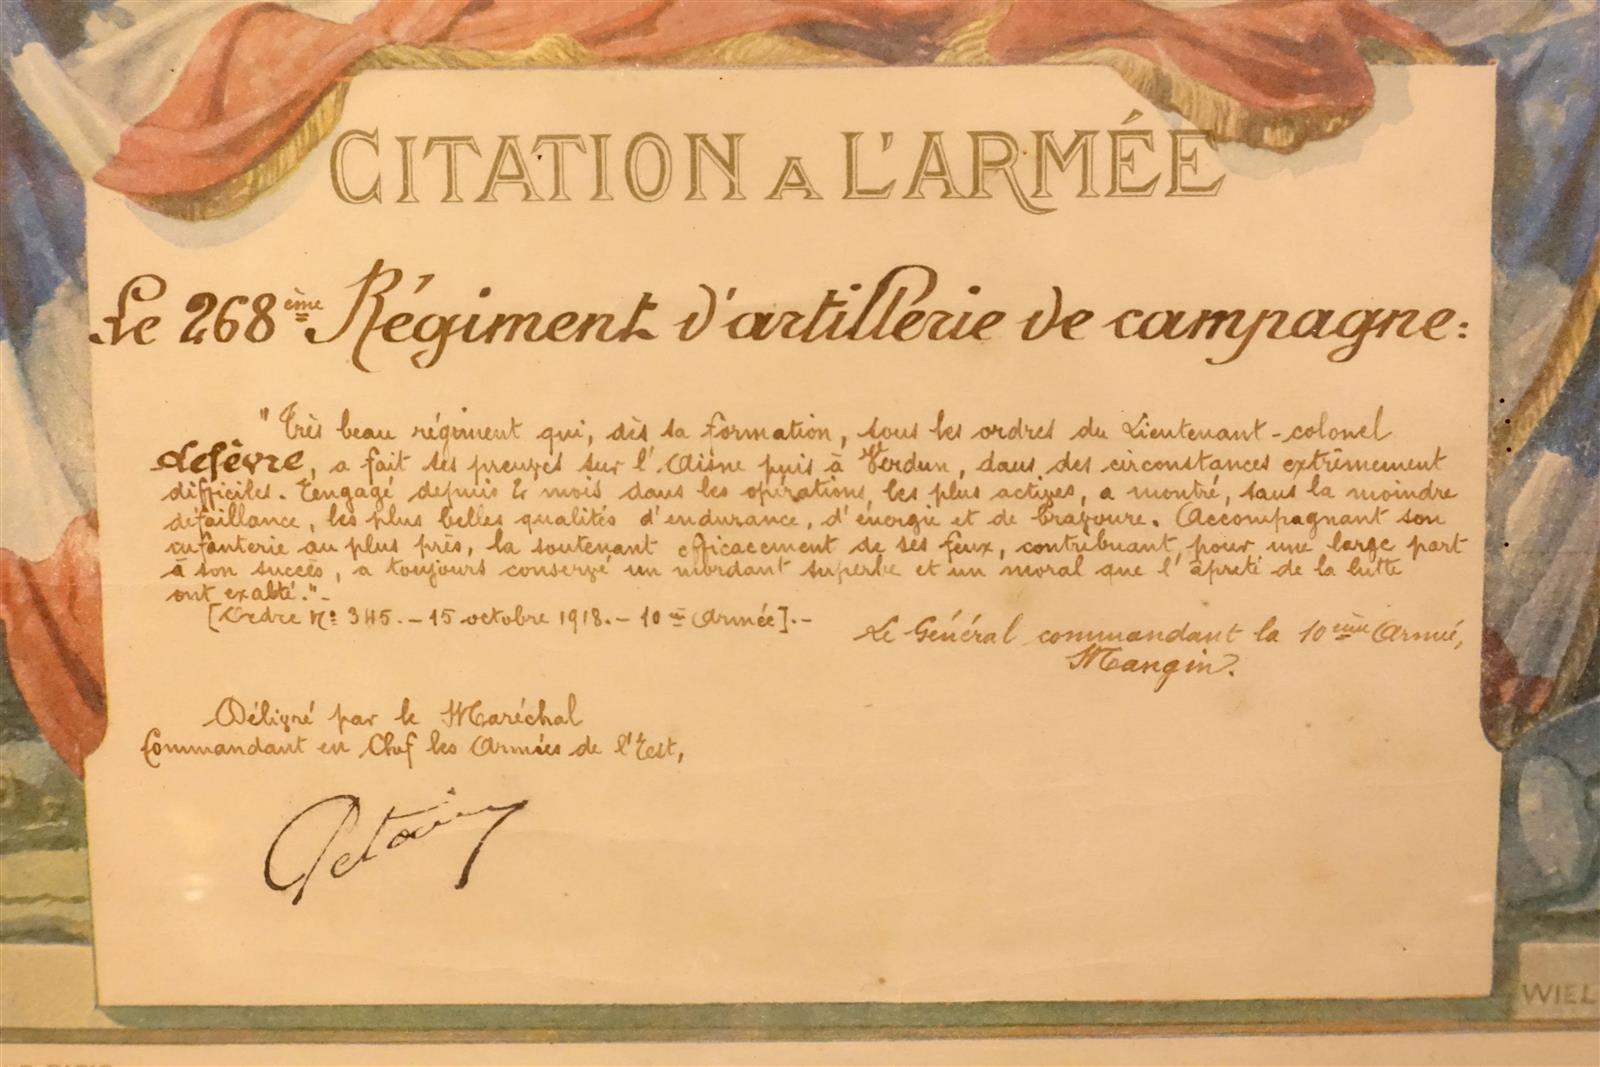 CITATION A L'ARMÉE
Le 268ème Régiment d'artillerie de campagne:
"Très beau régiment qui, dès sa formation, sous les ordres du Lieutenant-colonel
Lefèvre, a fait ses preuves sur l'Aisne puis à Verdun, dans des circonstances extrêmement
difficiles. Rengagé depuis 2 mois dans les opérations les plus actives, a montré, sans la moindre
défaillance, les plus belles qualités d'endurance, d'énergie et de bravoure. Accompagnant son
infanterie au plus près, la soutenant efficacement de ses feux, contribuant pour une large part
à son succès, a toujours conservé un mordant superbe et un moral que l'âpreté de la lutte
ont exalté."-
[Ordre No: 345.-15 octobre 1918.-10ème Armée].-
Le Général commandant la 10ème Armée,
Mangin.
Déligné par le Maréchal
Commandant en Chef les Armées de l'Est,
Petain
WIEL